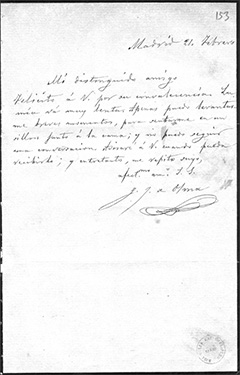 153
Madrid 21 Febrero
Mi distinguido amigo
Felicito á V. por su convalecencia. La
mia vá muy lenta. Apenas puedo levantar
me breves momentos, para sentarme en un
sillon junto á la cama; y no puedo seguir
una conversacion. Avisaré á V. cuando pueda
recibirle; y entretanto, me repito suyo,
afect. am. S. S.
J. J. de Osma